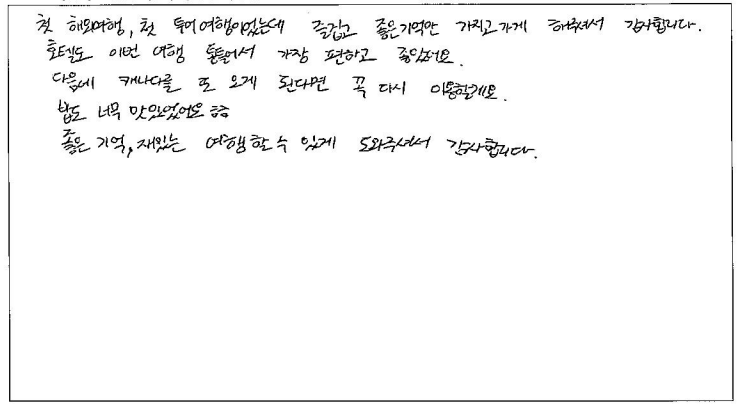 첫 해외여행, 첫 투어여행이었는데 즐겁고 좋은기억만 가지고가게 해주셔서 감사합니다.
호텔도 이번 여행 통틀어서 가장 편하고 좋았어요.
다음에 캐나다를 또 오게 된다면 꼭 다시 이용할게요.
밥도 너무 맛있었어요 ㅎㅎ
좋은 기억, 재있는 여행할 수 있게 도와주셔서 감사합니다.